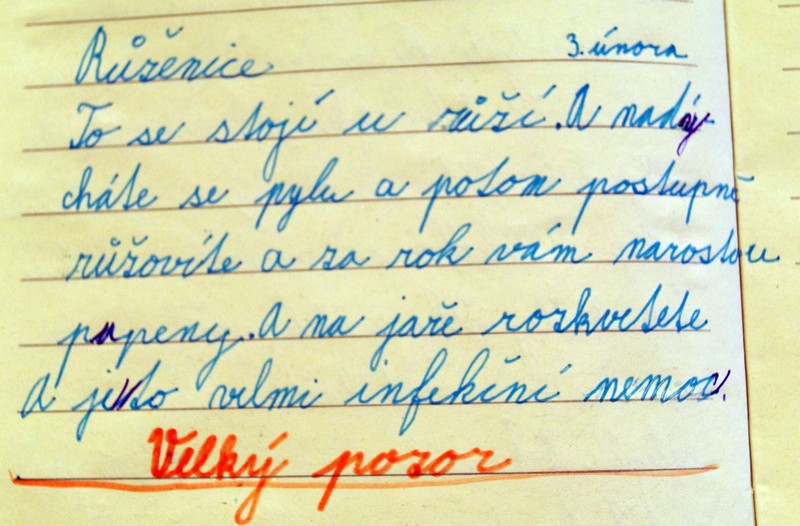 Růženice 3. února
To se stojí u růží. A nadý-
cháte se pylu a potom postupně
růžovíte a za rok vám narostou
pupeny. A na jaře rozkvetete
A je to velmi infekční nemoc.
Velký pozor